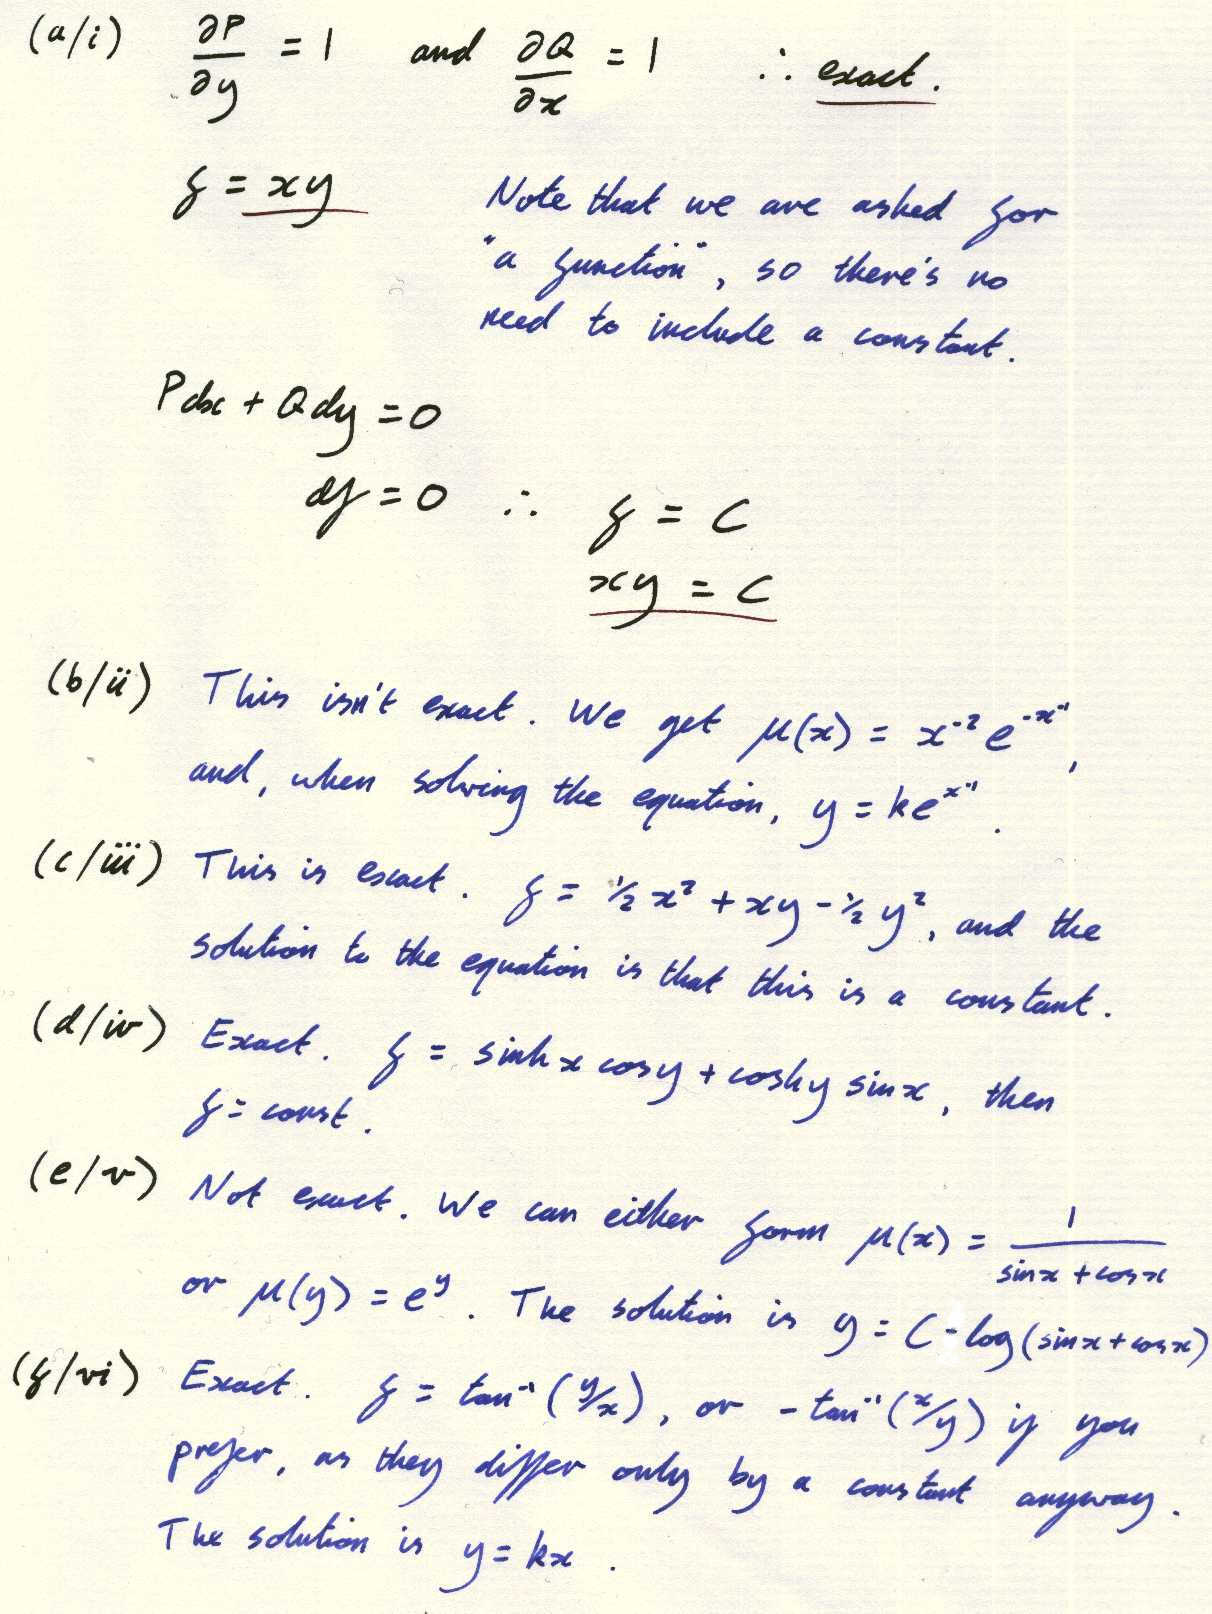 (a/i) ∂P/∂y = 1 and ∂Q/∂x = 1 ∴ exact.
f = xy Note that we are asked for
"a function", so there's no
need to include a constant.
Pdx + Qdy = 0
df = 0 ∴ f = C
xy = C
(b/ii) This isn't exact. We get μ(x) = x⁻² e^(-x⁻¹),
and, when solving the equation, y = ke^(x⁻¹).
(c/iii) This is exact. f = ½x² + xy - ½y², and the
solution to the equation is that this is a constant.
(d/iv) Exact. f = sinh x cos y + cosh y sin x, then
f = const.
(e/v) Not exact. We can either form μ(x) = 1/(sin x + cos x)
or μ(y) = e^y. The solution is y = C - log(sin x + cos x)
(f/vi) Exact. f = tan⁻¹(y/x), or -tan⁻¹(x/y) if you
prefer, as they differ only by a constant anyway.
The solution is y = kx.